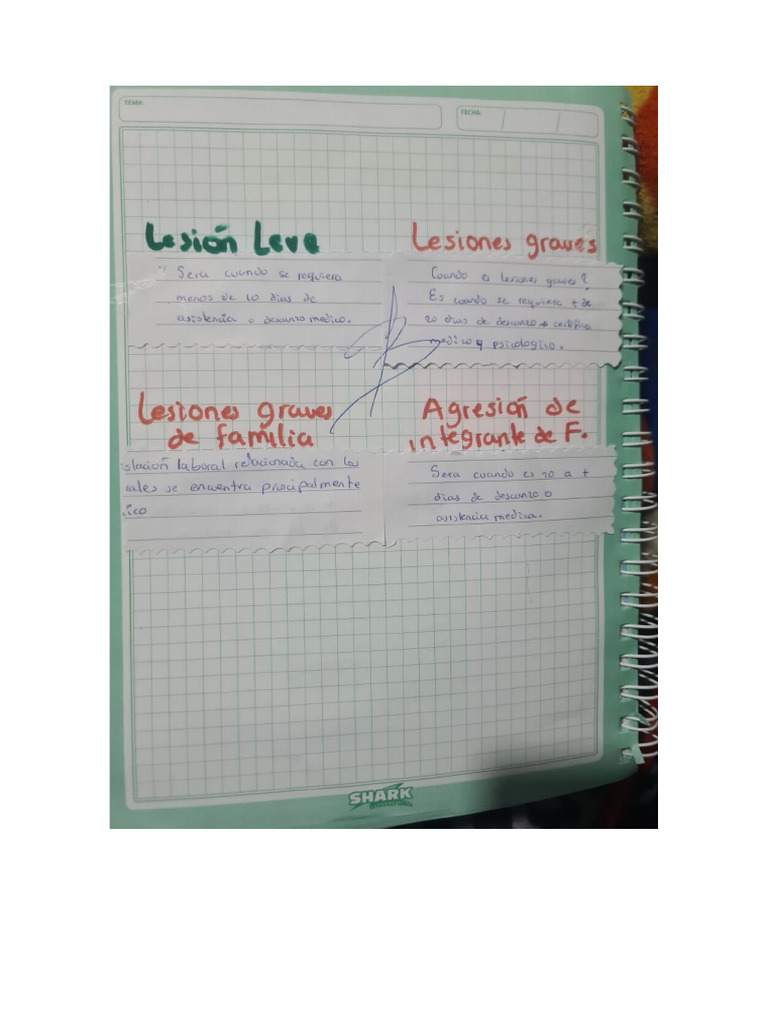 TEMA:
FECHA:
Lesión Leve
Sera cuando se requiera
menos de 10 dias de
asistencia o descanzo medico.
Lesiones graves
Cuando es lesiones graves?
Es cuando se requiera + de
20 dias de descanzo
medico y psicologico.
Lesiones graves
de familia
slación laboral relacionada con los
ales se encuentra principalmente
ico
Agresión de
integrante de F.
Sera cuando es 10 a +
dias de descanzo o
asistencia medica.
SHARK